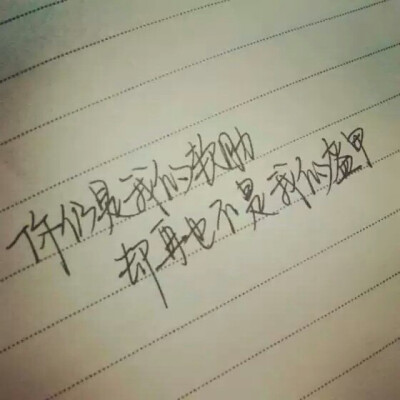 你仍是我的软肋
却再也不是我的盔甲